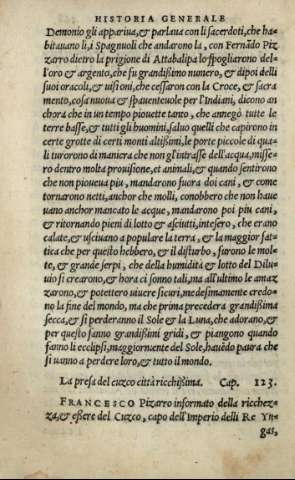 HISTORIA GENERALE
Demonio gli appariua, & parlaua con li sacerdoti, che ha-
bitauano li, i Spagnuoli che andarono la, con Fernādo Piz
zarro dietro la prigione di Attabalipa lo spogliarono del-
l'oro & argento, che fu grandißimo numero, & dipoi delli
suoi oracoli, & uisioni, che cessaron con la Croce, & sacra
mento, cosa nuoua & spauenteuole per l'Indiani, dicono an
chora che in un tempo piouette tanto, che annegò tutte le
terre basse, & tutti gli huomini, saluo quelli che capirono in
certe grotte di certi monti altißimi, le porte piccole di qua-
li turorono di maniera che non gl'intrasse dell'acqua, misse-
ro dentro molta prouisione, et animali, & quando sentirono
che non pioueua piu, mandarono fuora doi cani, & come
tornarono netti, anchor che molli, conobbero che non haue
uano anchor mancato le acque, mandarono poi piu cani,
& ritornando pieni di lotto & asciutti, intesero, che erano
calate, & usciuano a populare la terra, & la maggior fa-
tica che per questo hebbero, & il disturbo, furono le mol-
te, & grande serpi, che della humidità & lotto del Dilu-
uio si crearono, & hora ci sonno tali, ma all'ultimo le amaz
zarono, & potettero uiuere sicuri, medesimamente credo-
no la fine del mondo, ma che prima precederà grandißima
secca, & si perderanno il Sole & la Luna, che adorano, &
per questo fanno grandißimi gridi, & piangono quando
fanno li ecclipsi, maggiormente del Sole, hauēdo paura che
si uanno a perdere loro, & tutto il mondo.
La presa del cuzco città ricchißima. Cap. 123.
FRANCESCO Pizarro informato della ricchez-
za, & eßere del Cuzco, capo dell'Imperio delli Re Yn-
gas,